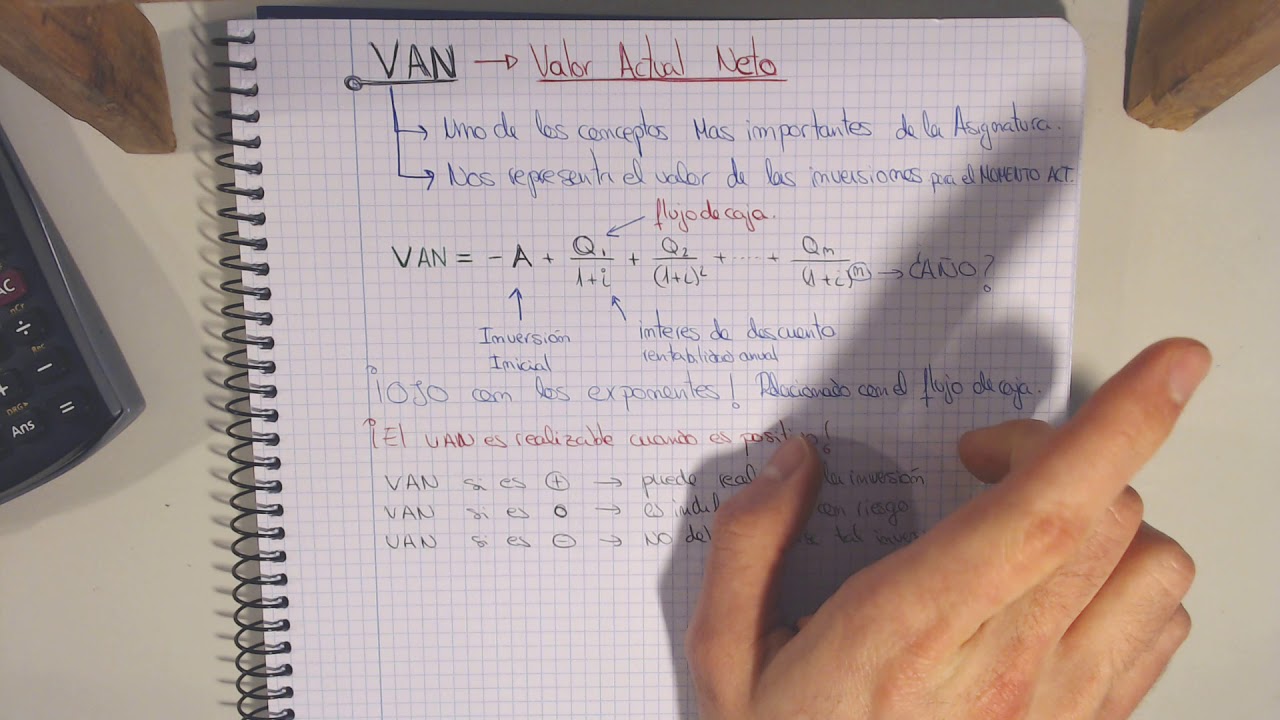 VAN → Valor Actual Neto
→ Uno de los conceptos Mas importantes de la Asignatura.
→ Nos representa el valor de las inversiones para el MOMENTO ACT.
flujo de caja.
VAN = - A + Q1/(1+i) + Q2/(1+i)² + ..... + Qn/(1+i)ⁿ → ¿AÑO?
Inversión
Inicial
interes de descuento
rentabilidad anual
¡OJO con los exponentes! Relacionado con el flujo de caja.
¡El VAN es realizable cuando es positivo!
VAN si es + → puede la inversión
VAN si es 0 → es con riesgo
VAN si es - → NO tal
AC
÷
−
+
=
Ans